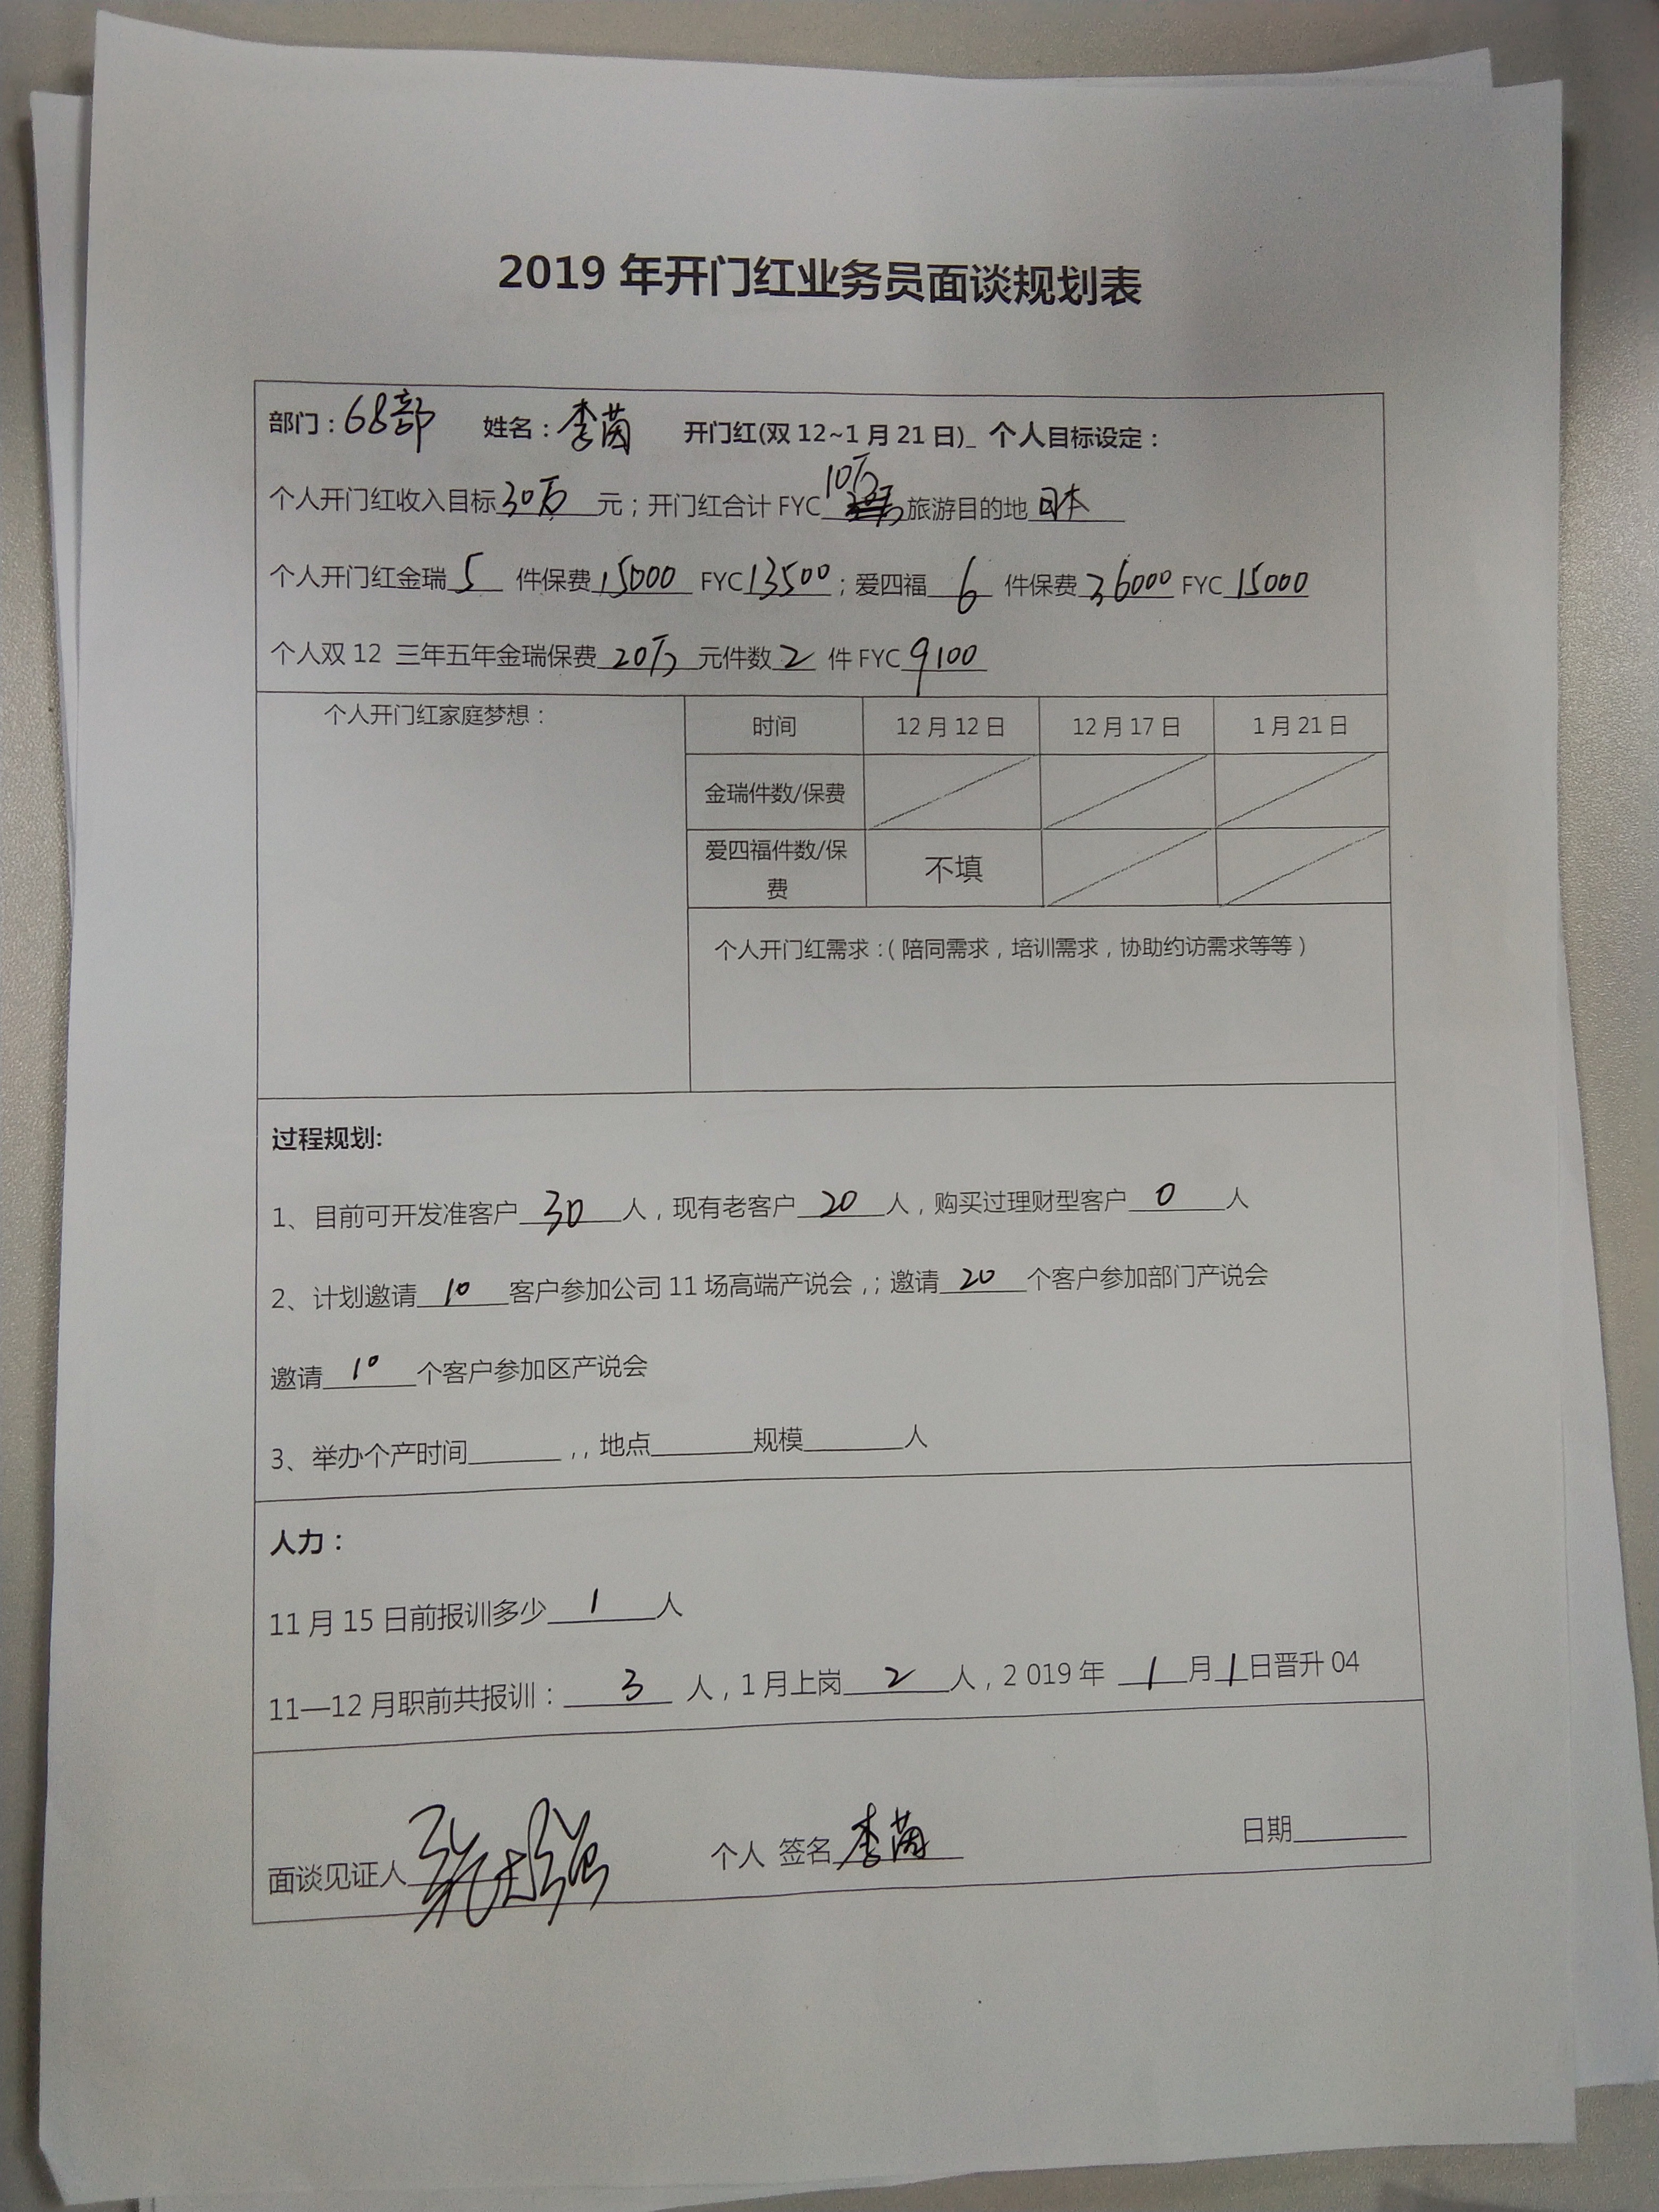 2019 年开门红业务员面谈规划表
部门：68部 姓名：李茵 开门红(双 12~1 月 21 日)_ 个人目标设定：
个人开门红收入目标 30万 元；开门红合计 FYC 10万 旅游目的地 日本
个人开门红金瑞 5 件保费 15000 FYC 13500；爱四福 6 件保费 36000 FYC 15000
个人双 12 三年五年金瑞保费 20万 元件数 2 件 FYC 9100
个人开门红家庭梦想：
时间 12 月 12 日 12 月 17 日 1 月 21 日
金瑞件数/保费
爱四福件数/保
费
不填
个人开门红需求：（陪同需求，培训需求，协助约访需求等等）
过程规划:
1、目前可开发准客户 30 人，现有老客户 20 人，购买过理财型客户 0 人
2、计划邀请 10 客户参加公司 11 场高端产说会，；邀请 20 个客户参加部门产说会
邀请 10 个客户参加区产说会
3、举办个产时间______，，地点______规模______人
人力：
11 月 15 日前报训多少 1 人
11—12 月职前共报训： 3 人，1 月上岗 2 人，2 019 年 1 月 1 日晋升 04
面谈见证人 个人 签名 李茵 日期______